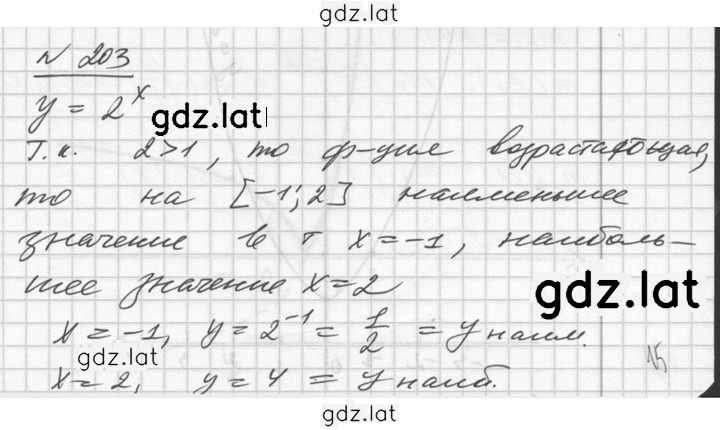 gdz.lat
№ 203
y = 2^x gdz.lat
Т.к. 2>1, то ф-ция возрастающая,
то на [-1; 2] наименьшее
значение в т x=-1, наиболь-
шее значение x=2
gdz.lat
x = -1, y = 2^-1 = 1/2 = y наим.
gdz.lat
x = 2, y = 4 = y наиб.
15
gdz.lat